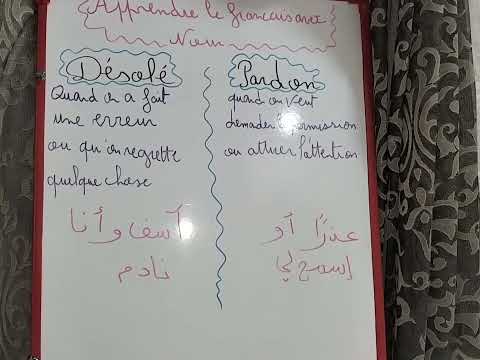 Apprendre le français avec
Nour
Désolé
Quand on a fait
une erreur
ou qu'on regrette
quelque chose
آسف وأنا
نادم
Pardon
quand on veut
demander permission
ou attirer l'attention
عذرًا أو
إسمح لي